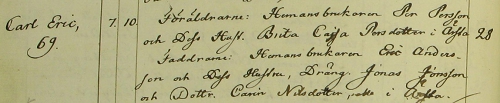 Carl Eric, 7. 10. Föräldrarne: Hemansbrukaren Per Persson
69. och Dess Hust. Brita Cajsa Persdotter i Åssa 28
Faddrarne: Hemansbrukaren Eric Anders-
son och Dess Hustru, Dräng. Jonas Jonsson
och Dottr. Carin Nilsdotter, alle i Åssa.